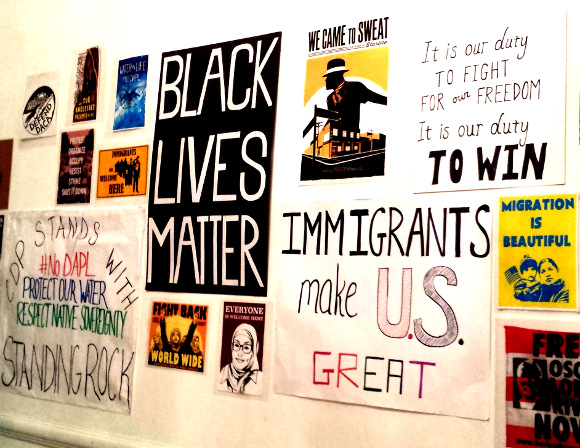 DEFEND
DACA
WATER IS LIFE
PROTEST
ORGANIZE
OCCUPY
RESIST
STRIKE
SHUT IT DOWN
IMMIGRANTS
ARE WELCOME
HERE
BLACK
LIVES
MATTER
WE CAME TO SWEAT
It is our duty
TO FIGHT
FOR our FREEDOM
It is our duty
TO WIN
STANDS
WITH
#NO DAPL
PROTECT OUR WATER
RESPECT NATIVE SOVEREIGNTY
STANDING ROCK
FIGHT BACK
WORLD WIDE
EVERYONE
IS WELCOME HERE
IMMIGRANTS
make U.S.
GREAT
MIGRATION
IS
BEAUTIFUL
FREE
OSC
NOW